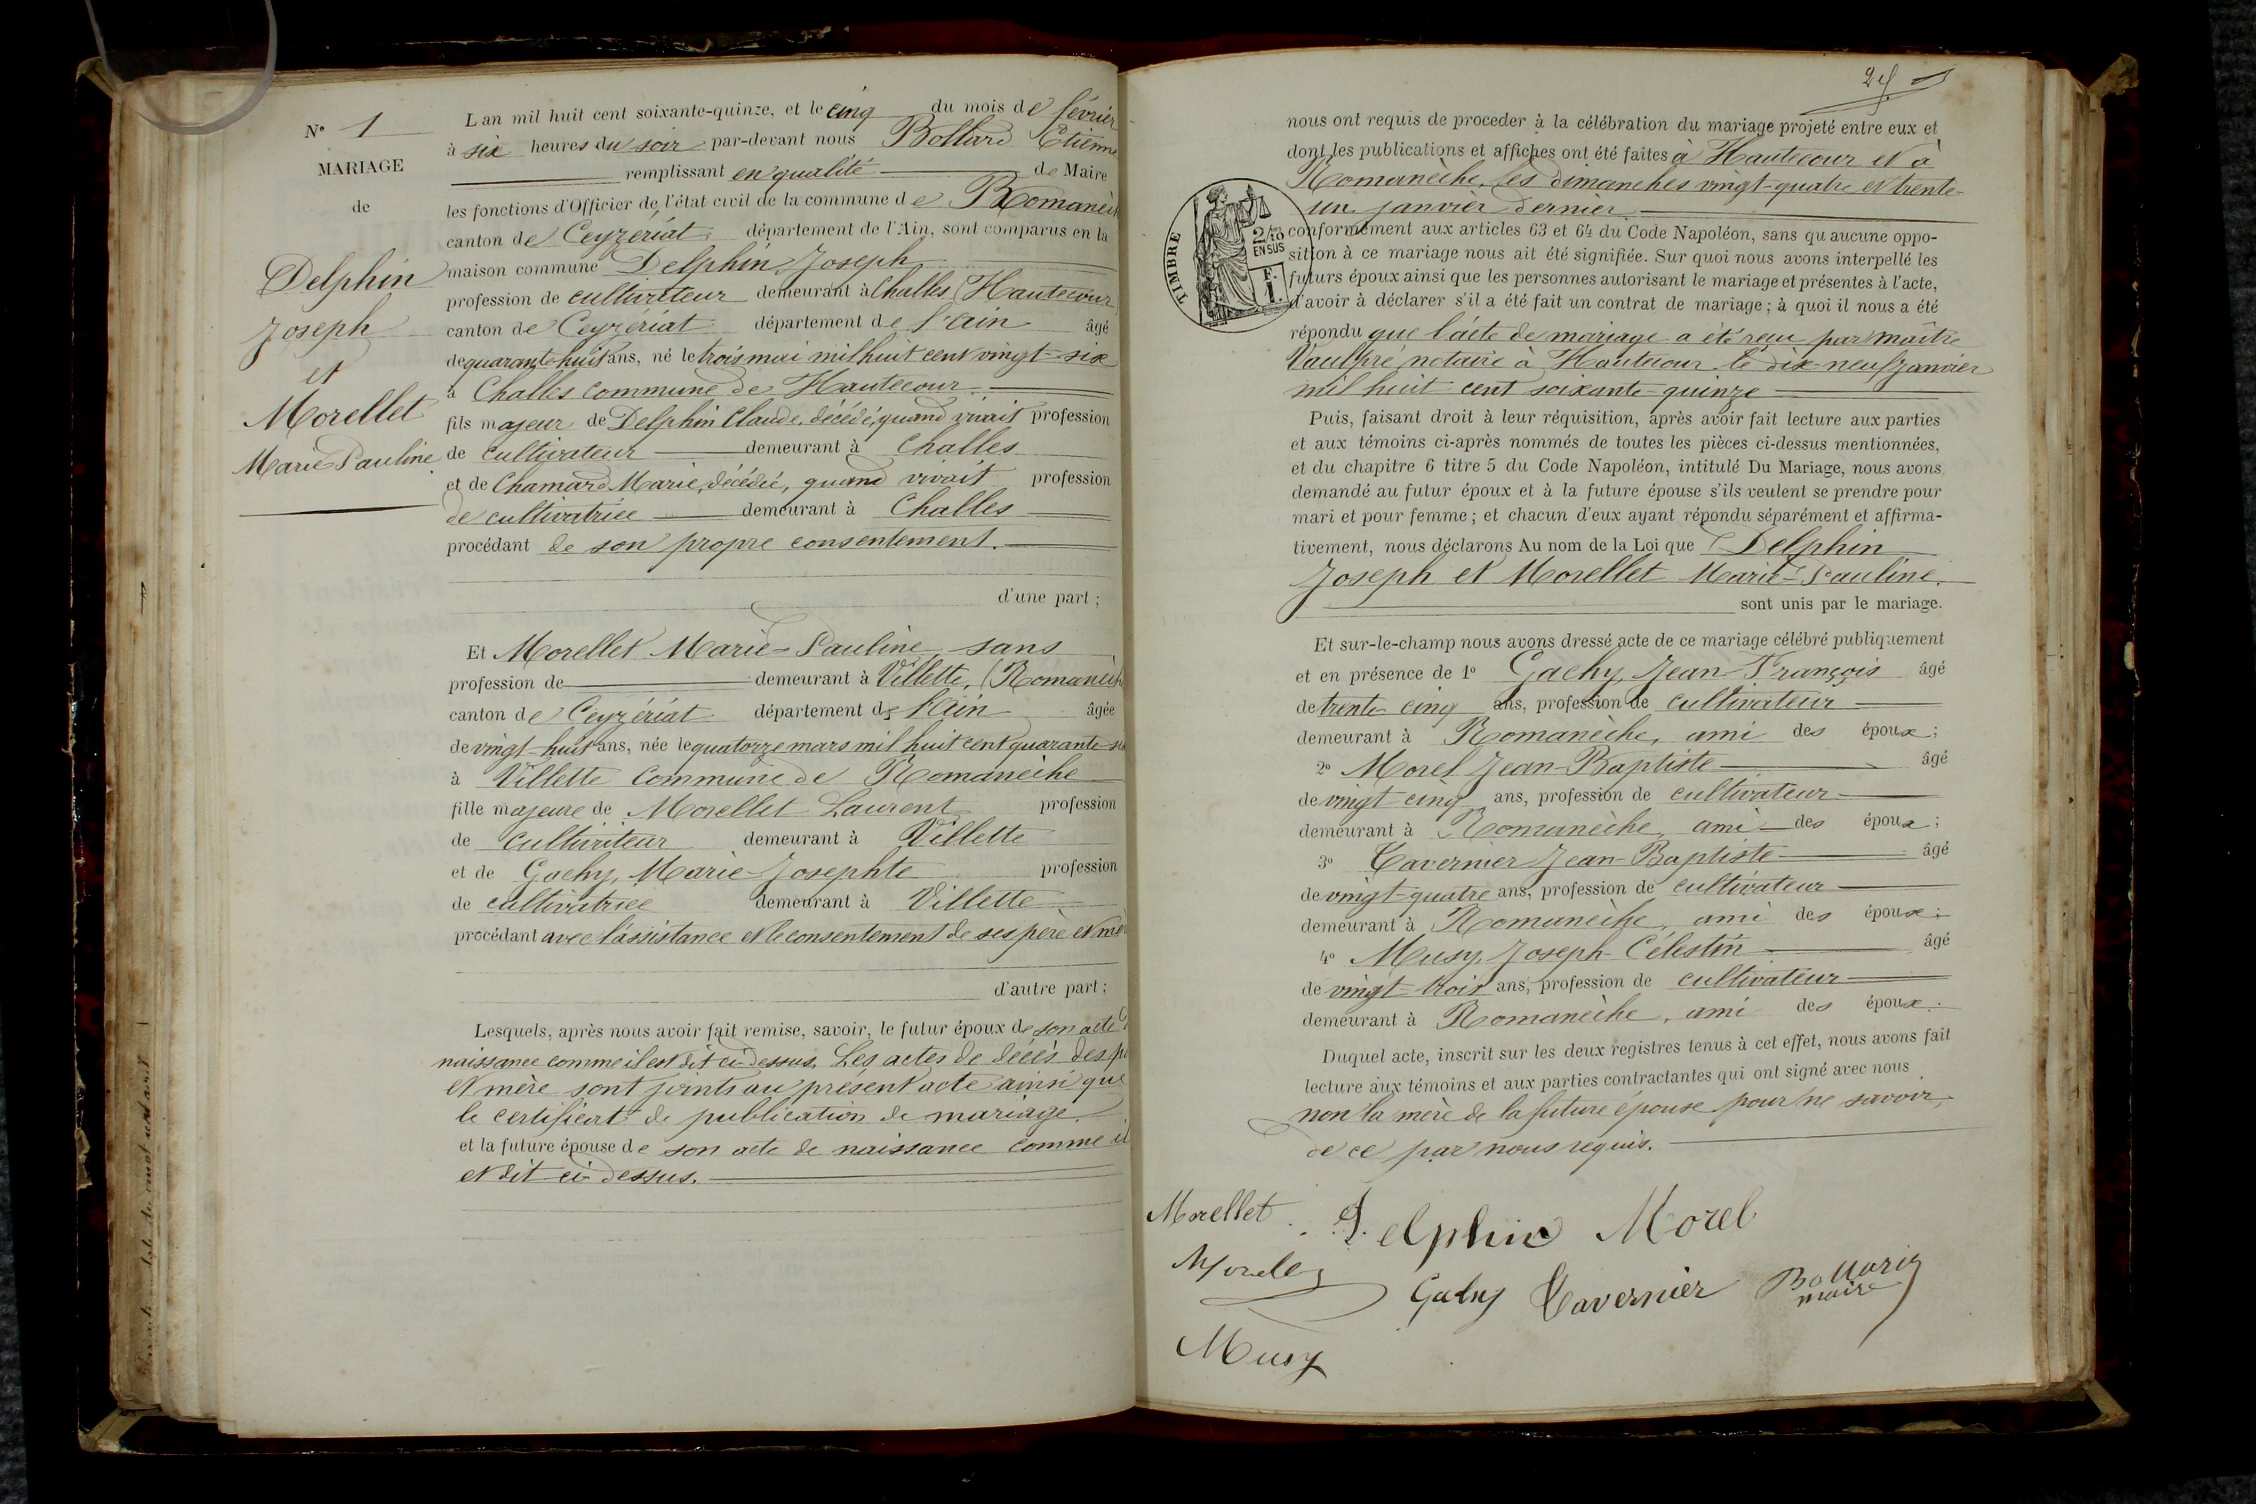 N° 1
MARIAGE
de
Delphin
Joseph
et
Morellet
Marie Pauline
L an mil huit cent soixante-quinze, et le cinq du mois de février
à six heures du soir par-devant nous Bollard Etienne
remplissant en qualité de Maire
les fonctions d'Officier de l'état civil de la commune de Romanèch
canton de Ceyzériat département de l'Ain, sont comparus en la
maison commune Delphin Joseph
profession de cultivateur demeurant à Challes (Hautecour
canton de Ceyzériat département de l'Ain âgé
de quarante-huit ans, né le trois mai mil huit cent vingt-six
à Challes commune de Hautecour
fils majeur de Delphin Claude, décédé, quand vivait profession
de cultivateur demeurant à Challes
et de Chamard Marie, décédée, quand vivait profession
de cultivatrice demeurant à Challes
procédant de son propre consentement.
d'une part ;
Et Morellet Marie-Pauline, sans
profession de demeurant à Villette, (Romanèch
canton de Ceyzériat département de l'Ain âgée
de vingt-huit ans, née le quatorze mars mil huit cent quarante-si
à Villette commune de Romanèche
fille majeure de Morellet Laurent profession
de cultivateur demeurant à Villette
et de Gachy, Marie-Josephte profession
de cultivatrice demeurant à Villette
procédant avec l'assistance et le consentement de ses père et mèr
d'autre part ;
Lesquels, après nous avoir fait remise, savoir, le futur époux de son acte d
naissance comme il est dit ci-dessus. Les actes de décès des pè
et mère sont joints au présent acte ainsi que
le certificat de publication de mariage.
et la future épouse de son acte de naissance comme il
et dit ci-dessus.
nous ont requis de proceder à la célébration du mariage projeté entre eux et
dont les publications et affiches ont été faites à Hautecour et à
Romanèche, les dimanches vingt-quatre et trente-
un janvier dernier.
conformément aux articles 63 et 64 du Code Napoléon, sans qu aucune oppo-
sition à ce mariage nous ait été signifiée. Sur quoi nous avons interpellé les
futurs époux ainsi que les personnes autorisant le mariage et présentes à l'acte,
d'avoir à déclarer s'il a été fait un contrat de mariage ; à quoi il nous a été
répondu que l'acte de mariage a été reçu par maître
Vaulpré notaire à Hautecour le dix-neuf janvier
mil huit cent soixante-quinze
Puis, faisant droit à leur réquisition, après avoir fait lecture aux parties
et aux témoins ci-après nommés de toutes les pièces ci-dessus mentionnées,
et du chapitre 6 titre 5 du Code Napoléon, intitulé Du Mariage, nous avons
demandé au futur époux et à la future épouse s'ils veulent se prendre pour
mari et pour femme ; et chacun d'eux ayant répondu séparément et affirma-
tivement, nous déclarons Au nom de la Loi que Delphin
Joseph et Morellet Marie-Pauline.
sont unis par le mariage.
Et sur-le-champ nous avons dressé acte de ce mariage célébré publiquement
et en présence de 1° Gachy, Jean-François âgé
de trente-cinq ans, profession de cultivateur
demeurant à Romanèche, ami des époux ;
2° Morel Jean-Baptiste âgé
de vingt-cinq ans, profession de cultivateur
demeurant à Romanèche, ami des époux ;
3° Tavernier Jean-Baptiste âgé
de vingt-quatre ans, profession de cultivateur
demeurant à Romanèche, ami des époux ;
4° Musy, Joseph-Célestin âgé
de vingt-trois ans, profession de cultivateur
demeurant à Romanèche, ami des époux.
Duquel acte, inscrit sur les deux registres tenus à cet effet, nous avons fait
lecture aux témoins et aux parties contractantes qui ont signé avec nous
non la mère de la future épouse pour ne savoir,
de ce par nous requis.
TIMBRE
2/10
EN SUS
F.
1.
Morellet Delphin Morel
Gachy Tavernier Bollard
maire
Musy